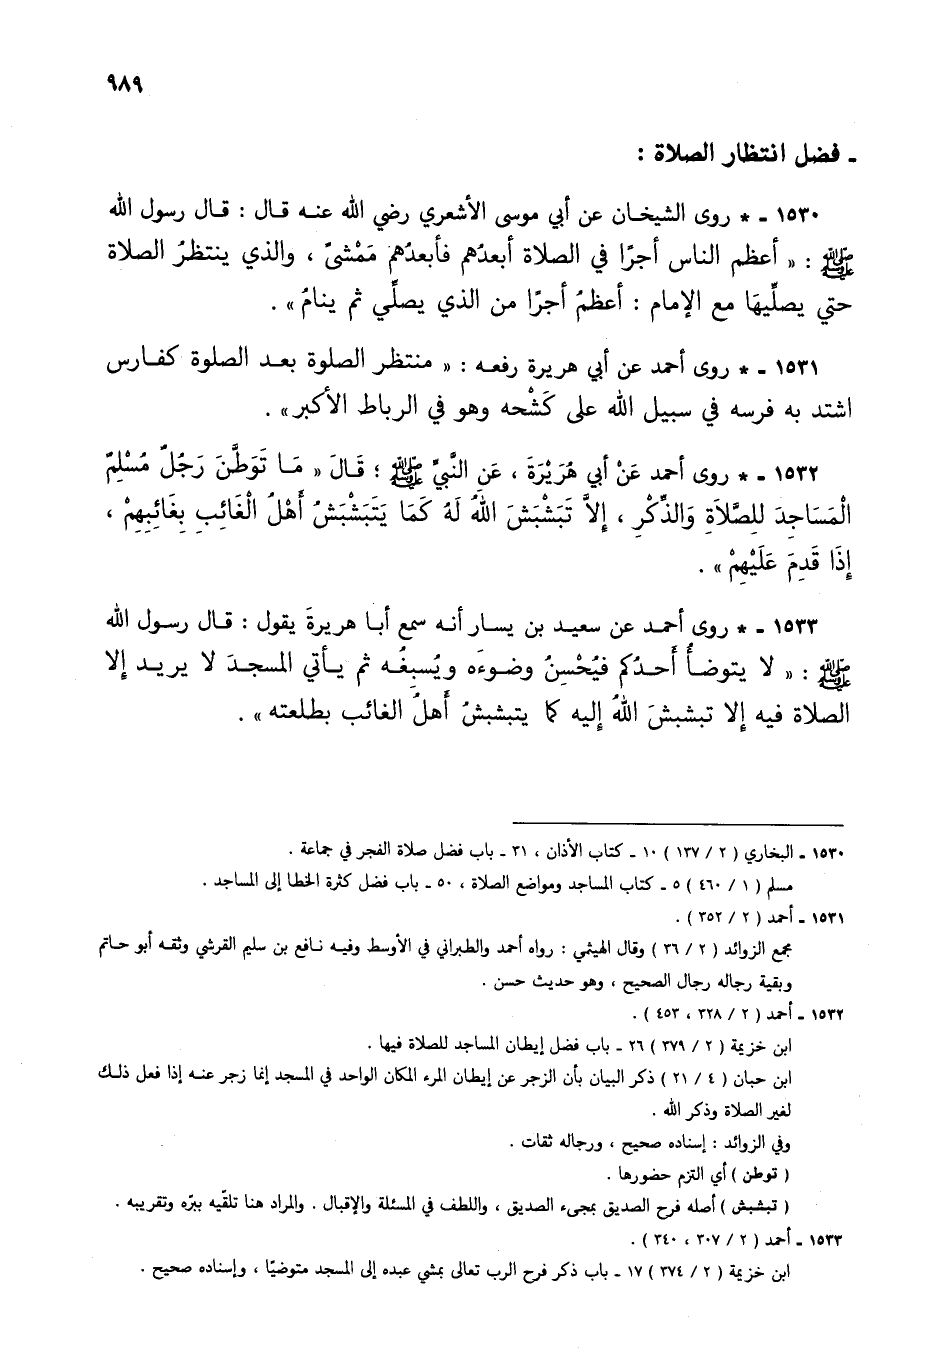 ٩٨٩
ـ فضل انتظار الصلاة :
١٥٣٠ ـ * روى الشيخان عن أبي موسى الأشعري رضي الله عنه قال : قال رسول الله
ﷺ : « أعظم الناس أجرًا في الصلاة أبعدُهم فأبعدُهم مَمْشىً ، والذي ينتظرُ الصلاة
حتي يصلِّيهَا مع الإمام : أعظمُ أجرًا من الذي يصلِّي ثم ينامُ » .
١٥٣١ ـ * روى أحمد عن أبي هريرة رفعه : « منتظر الصلوة بعد الصلوة كفارس
اشتد به فرسه في سبيل الله على كَشْحه وهو في الرباط الأكبر» .
١٥٣٢ ـ * روى أحمد عَنْ أبي هُرَيْرَةَ ، عَنِ النَّبيِّ ﷺ ؛ قَالَ « مَا تَوَطَّنَ رَجُلٌ مُسْلِمٌ
الْمَسَاجِدَ لِلصَّلاَةِ وَالذِّكْرِ ، إلاَّ تَبَشْبَشَ اللهُ لَهُ كَمَا يَتَبَشْبَشُ أَهْلُ الْغَائِبِ بِغَائِبِهِمْ ،
إِذَا قَدِمَ عَلَيْهِمْ » .
١٥٣٣ ـ * روى أحمد عن سعيد بن يسار أنه سمع أبا هريرةَ يقول : قال رسول الله
ﷺ : « لا يتوضأُ أَحدُكم فيُحْسِنُ وضوءَه ويُسبِغُه ثم يأتي المسجدَ لا يريد إلا
الصلاة فيه إلا تبشبشَ اللهُ إليه كما يتبشبشُ أَهلُ الغائب بطلعته » .
١٥٣٠ ـ البخاري ( ٢ / ١٣٧ ) ١٠ ـ كتاب الأذان ، ٣١ ـ باب فضل صلاة الفجر في جماعة .
مسلم ( ١ / ٤٦٠ ) ٥ ـ كتاب المساجد ومواضع الصلاة ، ٥٠ ـ باب فضل كثرة الخطا إلى المساجد .
١٥٣١ ـ أحمد ( ٢ / ٣٥٢ ) .
مجمع الزوائد ( ٢ / ٣٦ ) وقال الهيثمي : رواه أحمد والطبراني في الأوسط وفيه نافع بن سليم القرشي وثقه أبو حاتم
وبقية رجاله رجال الصحيح ، وهو حديث حسن .
١٥٣٢ ـ أحمد ( ٢ / ٣٢٨ ، ٤٥٣ ) .
ابن خزيمة ( ٢ / ٣٧٩ ) ٢٦ ـ باب فضل إيطان المساجد للصلاة فيها .
ابن حبان ( ٤ / ٢١ ) ذكر البيان بأن الزجر عن إيطان المرء المكان الواحد في المسجد إنما زجر عنه إذا فعل ذلك
لغير الصلاة وذكر الله .
وفي الزوائد : إسناده صحيح ، ورجاله ثقات .
( توطن ) أي التزم حضورها .
( تبشبش ) أصله فرح الصديق بمجىء الصديق ، واللطف في المسئلة والإقبال . والمراد هنا تلقّيه ببرّه وتقريبه .
١٥٣٣ ـ أحمد ( ٢ / ٣٠٧ ، ٣٤٠ ) .
ابن خزيمة ( ٢ / ٣٧٤ ) ١٧ ـ باب ذكر فرح الرب تعالى بمشي عبده إلى المسجد متوضيًا ، وإسناده صحيح .